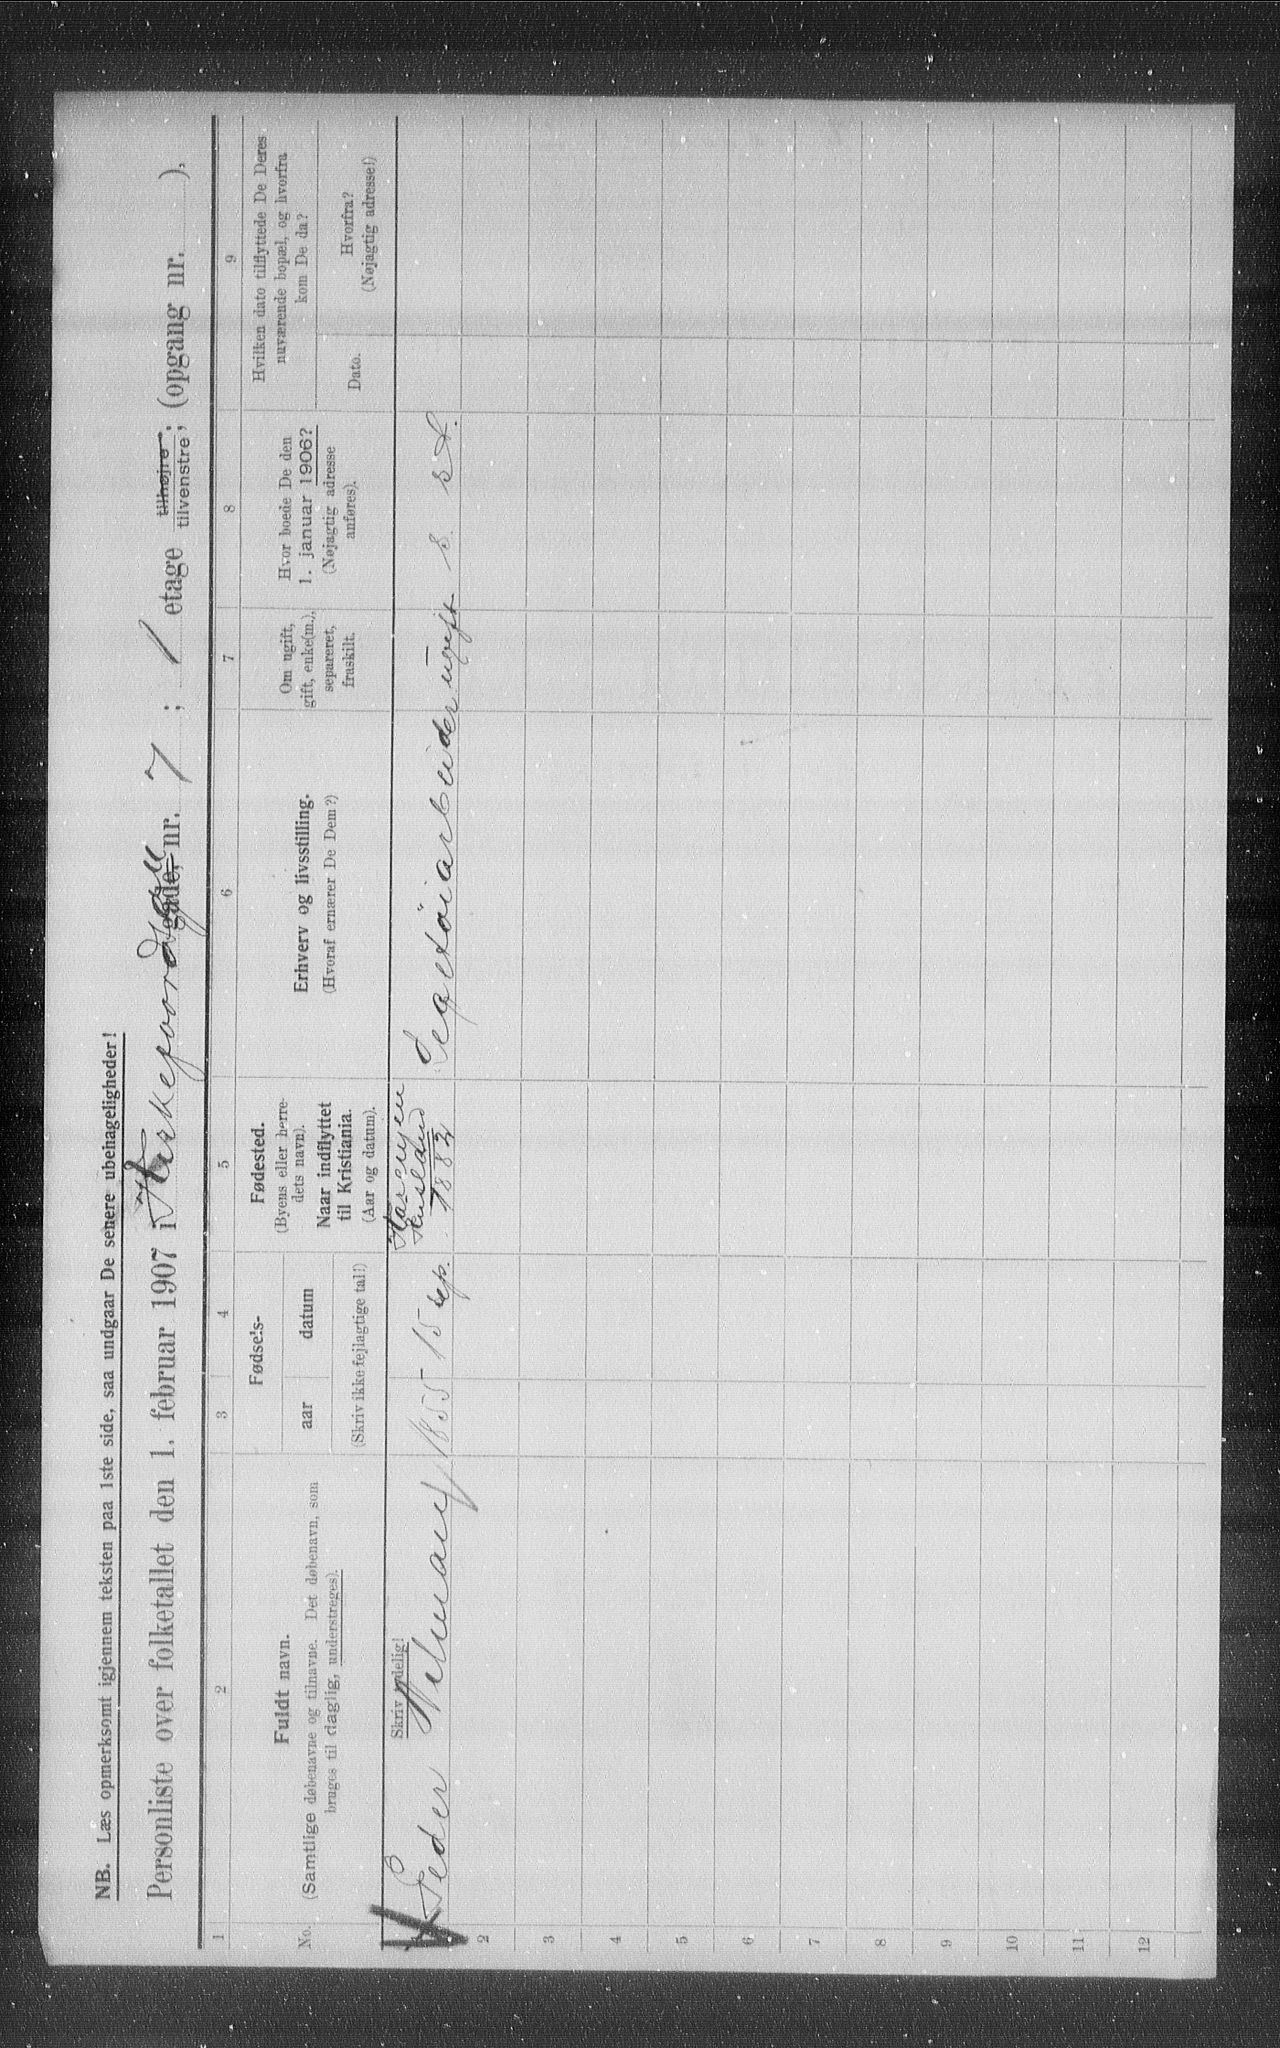 NB. Læs opmerksomt igjennem teksten paa 1ste side, saa undgaar De senere ubehageligheder!
Personliste over folketallet den 1. februar 1907 i gade, nr. 7 ; 1 etage tilhøjre, tilvenstre, (opgang nr. ),
1 2 3 4 5 6 7 8 9
No.
Fuldt navn.
(Samtlige døbenavne og tilnavne. Det døbenavn, som
bruges til daglig, understreges).
Fødsels-
aar datum
(Skriv ikke fejlagtige tal!)
Fødested.
(Byens eller herre-
dets navn).
Naar indflyttet
til Kristiania.
(Aar og datum).
Erhverv og livsstilling.
(Hvoraf ernærer De Dem?)
Om ugift,
gift, enke(m.),
separeret,
fraskilt.
Hvor boede De den
1. januar 1906?
(Nøjagtig adresse
anføres).
Hvilken dato tilflyttede De Deres
nuværende bopæl, og hvorfra
kom De da?
Dato.
Hvorfra?
(Nøjagtig adresse!)
Skriv tydelig!
Peder 1855 15 sep. 1883 ugift s. s. st.
2
3
4
5
6
7
8
9
10
11
12